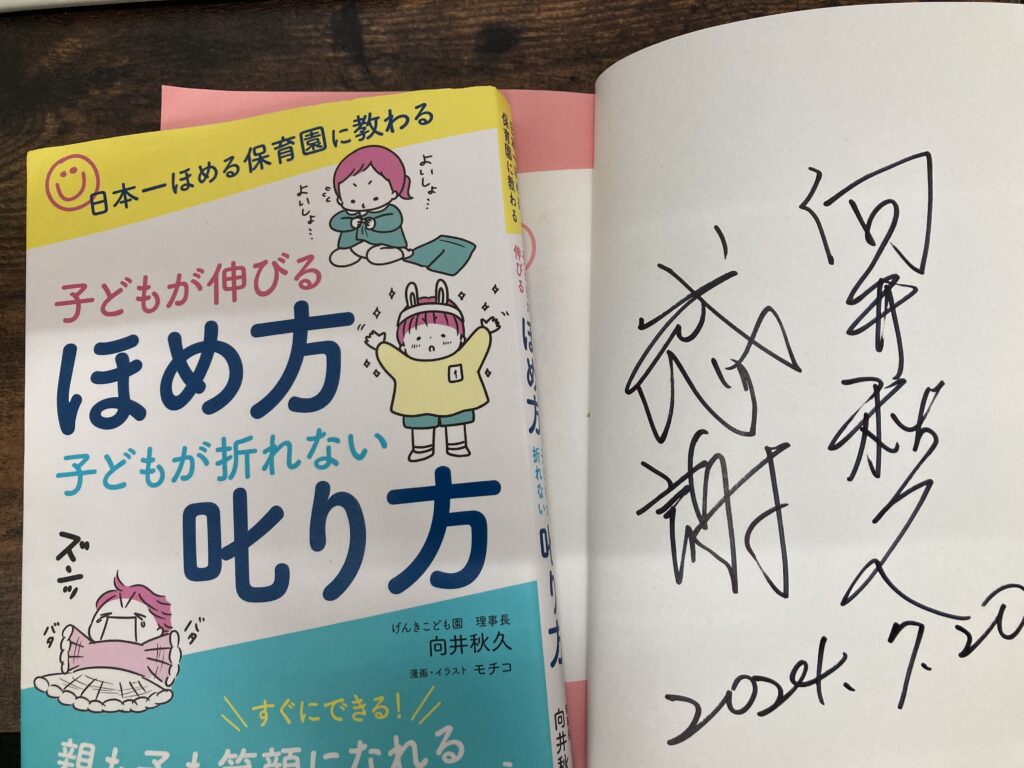 日本一ほめる保育園に教わる
よいしょ…
よいしょ…
子どもが伸びる
ほめ方
子どもが折れない
叱り方
ズーンッ
バタ
バタ
げんきこども園 理事長
向井秋久
漫画・イラスト モチコ
すぐにできる!
親も子も笑顔になれる
保育園に教わる
伸びる
ほめ方
折れない
叱り方
向井秋
向井秋久
感謝
2024.7.20